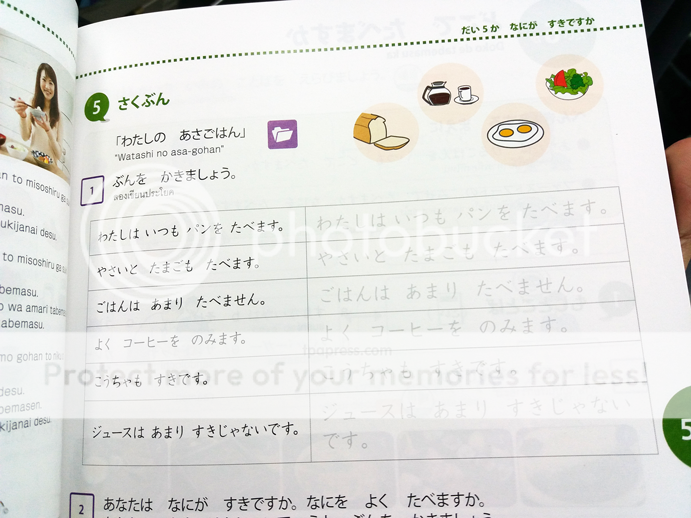 だい5か なにが すきですか
5 さくぶん
「わたしの あさごはん」
"Watashi no asa-gohan"
1 ぶんを かきましょう。
ลองเขียนประโยค
わたしは いつも パンを たべます。
わたしは いつも パンを たべます。
やさいと たまごも たべます。
やさいと たまごも たべます。
ごはんは あまり たべません。
ごはんは あまり たべません。
よく コーヒーを のみます。
よく コーヒーを のみます。
こうちゃも すきです。
こうちゃも すきです。
ジュースは あまり すきじゃないです。
ジュースは あまり すきじゃない
です。
2 あなたは なにが すきですか。なにを よく たべますか。
an to misoshiru ga
masu.
ukijanai desu.
to misoshiru ga
bemasu.
wa amari tabema
abemasu.
mo gohan to niku
desu.
bemasen.
kijanai desu.
5
photobucket
Protect more of your memories for less!